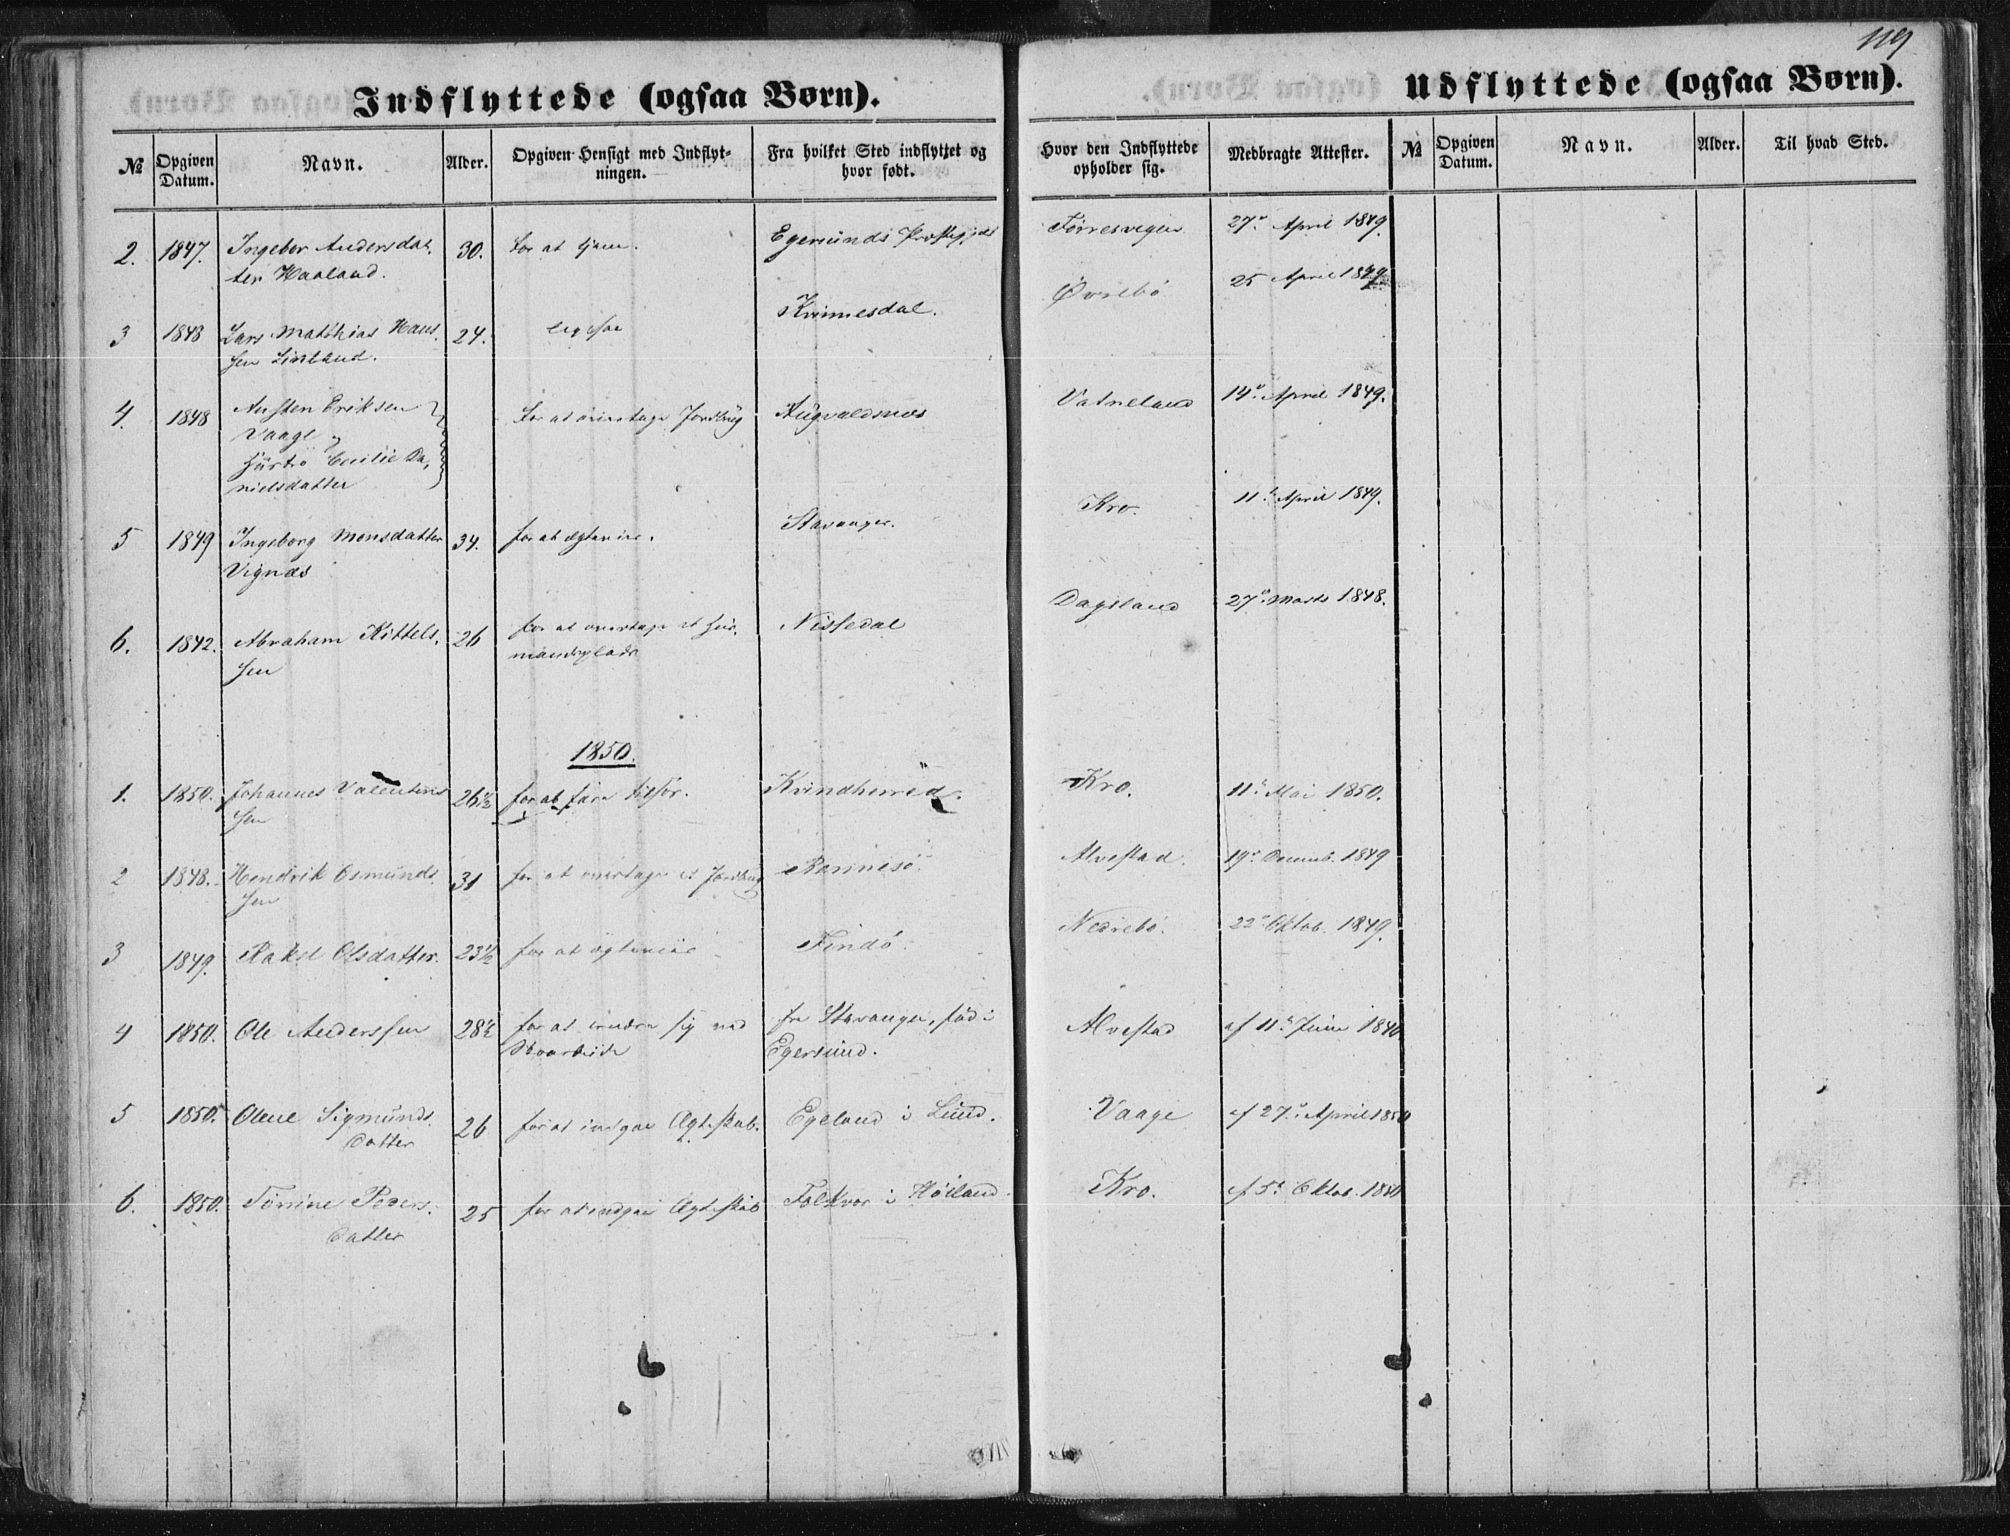 119
Indflyttede (ogsaa Børn).
Udflyttede (ogsaa Børn).
№ Opgiven Datum. Navn. Alder. Opgiven Hensigt med Indflyt-
ningen. Fra hvilket Sted indflyttet og
hvor født. Hvor den Indflyttede
opholder sig. Medbragte Attester. № Opgiven Datum. Navn. Alder. Til hvad Sted.
2. 1847. Ingebor Andersdat- 30. for at tjene. Egersunds Præstegjeld 27de April 1849.
ter Haaland.
3 1848 Lars Matthias Hans- 24. ligesaa Kvinnesdal. Øvrebö 25 April 1849.
sen
4. 1848 Eriksen for at overtage Jordbrug Augvaldsnæs Vatneland 14de April 1849.
Vaage
Hustro Da-
nielsdatter
5 1849 Ingeborg Monsdatter 34. for at ægtevies. Stavanger. Kro. 11te April 1849.
Vignæs
6. 1842. Abraham Kittels- 26 for at overtage et Hus- Nissedal Dagsland 27de Marts 1848.
sen mandsplads
1850.
1. 1850. Johannes Valentins 26½ for at fare tilsös. Kvindherred. Kro. 11te Mai 1850.
sen
2 1848. Hendrik Osmunds- 31 for at overtage et Jordbrug Rennesö Alvestad. 19de Decemb. 1849
sen
3 1849. Rakel Olsdatter. 23½ for at ægtevies Findö. Nedrebö. 22de Oktob. 1849.
4 1850. Ole Anderssen 28½ for at ernære sig ved fra Stavanger, föd i Alvestad af 11te Juni
Egersund.
5 1850. Olene Sigmunds- 26 for at indgaae Ægteskab. Egeland i Lund. Vaage af 27de April 1850
datter
6. 1850. Tonnine Peders- 25 for at indgaae Ægteskab Folkvor i Höiland. Kro. af 5te Oktob. 1850
datter